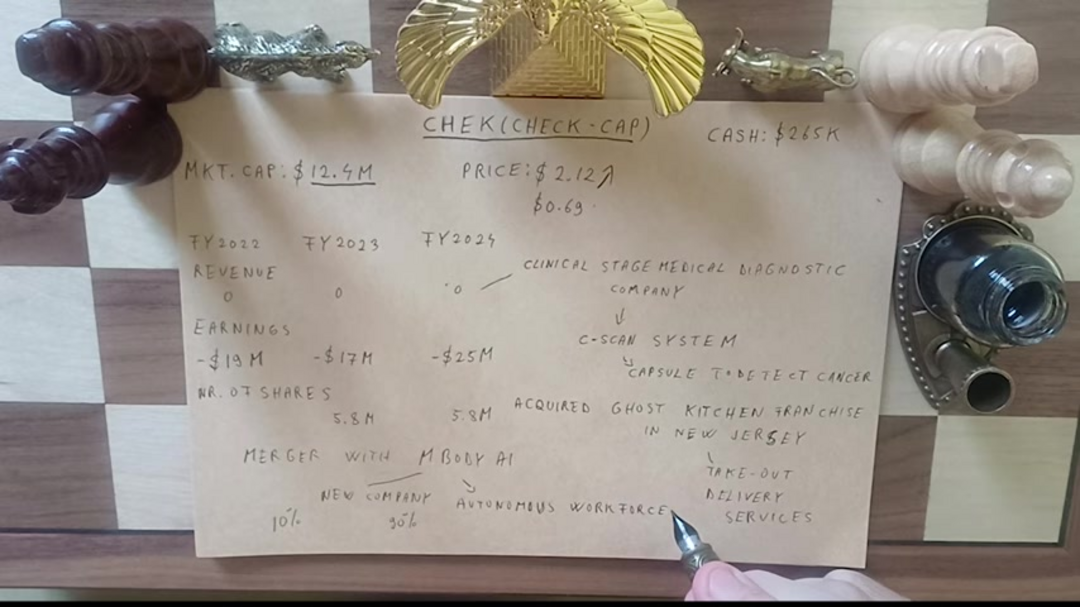 CHEK(CHECK-CAP)
CASH: $265K
MKT. CAP: $12.4M
PRICE: $2.12
$0.69
FY2022 FY2023 FY2024
REVENUE
0 0 0
CLINICAL STAGE MEDICAL DIAGNOSTIC
COMPANY
C-SCAN SYSTEM
CAPSULE TO DETECT CANCER
EARNINGS
-$19M -$17M -$25M
NR. OF SHARES
5.8M 5.8M
ACQUIRED GHOST KITCHEN FRANCHISE
IN NEW JERSEY
TAKE-OUT
DELIVERY
SERVICES
MERGER WITH MBODY AI
NEW COMPANY
AUTONOMOUS WORKFORCE
10% 90%